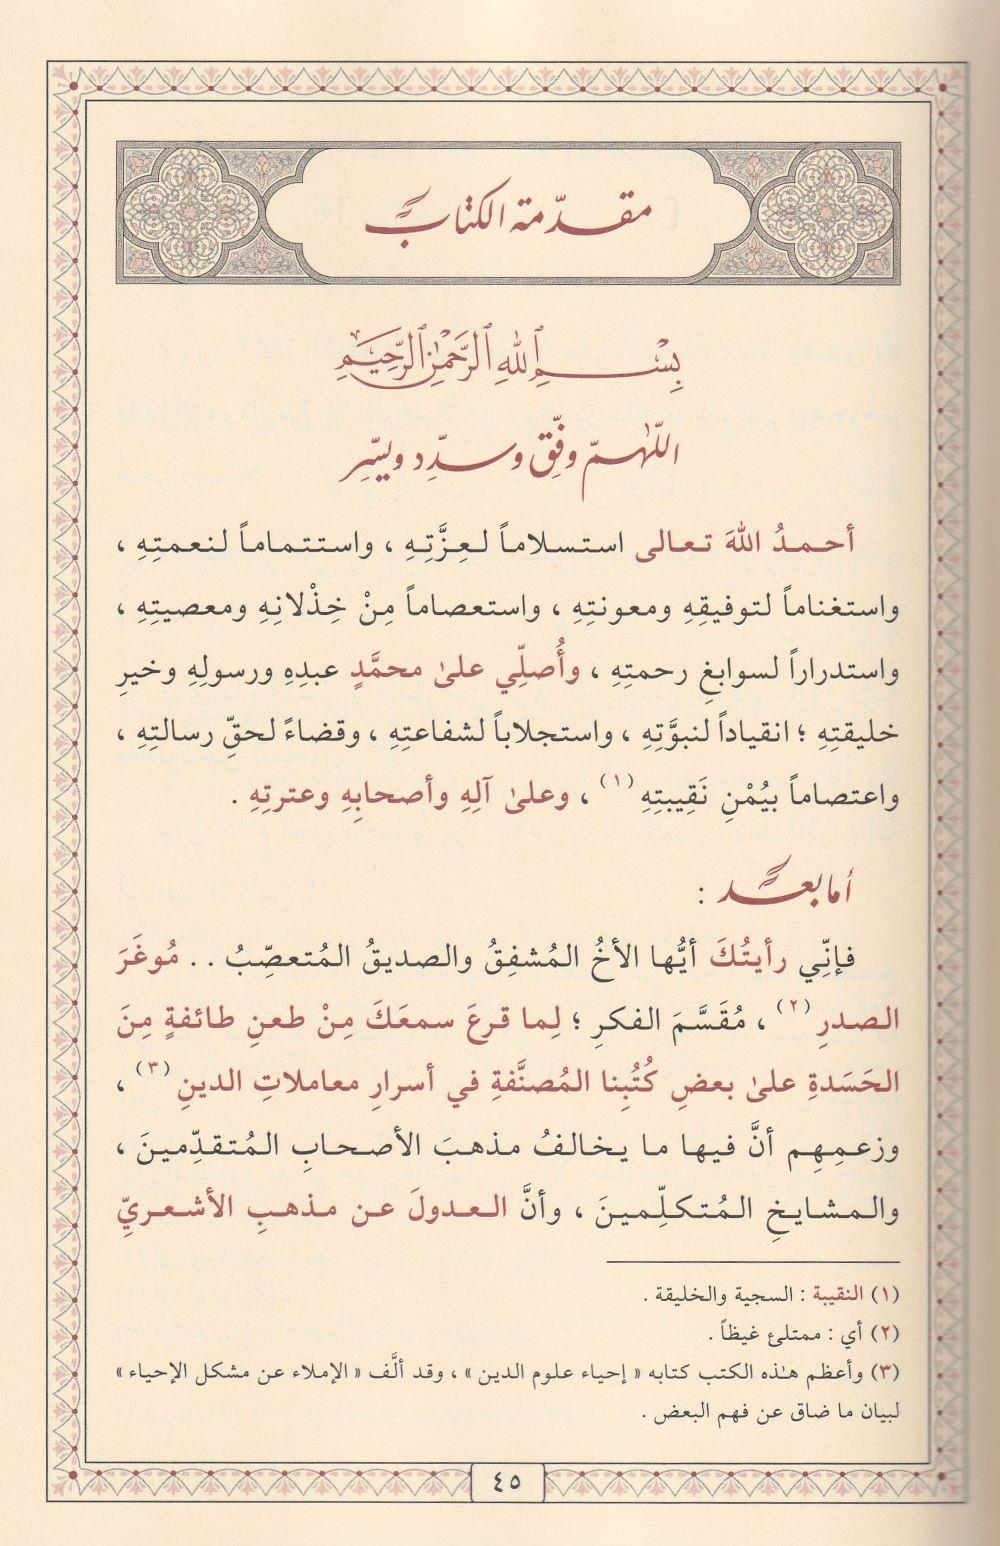 مقدّمة الكتاب
بِسْمِ ٱللهِ ٱلرَّحْمَٰنِ ٱلرَّحِيمِ
اللّٰهمّ وفّق وسدّد ويسّر
أحمدُ اللهَ تعالى استسلاماً لعِزَّتِهِ ، واستتماماً لنعمتِهِ ،
واستغناماً لتوفيقِهِ ومعونتِهِ ، واستعصاماً مِنْ خِذْلانِهِ ومعصيتِهِ ،
واستدراراً لسوابغِ رحمتِهِ ، وأُصلِّي علىٰ محمَّدٍ عبدِهِ ورسولِهِ وخيرِ
خليقتِهِ ؛ انقياداً لنبوَّتِهِ ، واستجلاباً لشفاعتِهِ ، وقضاءً لحقِّ رسالتِهِ ،
واعتصاماً بيُمْنِ نَقِيبتِهِ (١) ، وعلىٰ آلِهِ وأصحابِهِ وعترتِهِ .
أما بعد :
فإنِّي رأيتُكَ أيُّها الأخُ المُشفِقُ والصديقُ المُتعصِّبُ . . مُوغَرَ
الصدرِ (٢) ، مُقَسَّمَ الفكرِ ؛ لِما قرعَ سمعَكَ مِنْ طعنِ طائفةٍ مِنَ
الحَسَدةِ علىٰ بعضِ كُتُبِنا المُصنَّفةِ في أسرارِ معاملاتِ الدينِ (٣) ،
وزعمِهِم أنَّ فيها ما يخالفُ مذهبَ الأصحابِ المُتقدِّمينَ ،
والمشايخِ المُتكلِّمينَ ، وأنَّ العدولَ عن مذهبِ الأشعريِّ
(١) النقيبة : السجية والخليقة .
(٢) أي : ممتلئ غيظاً .
(٣) وأعظم هٰذه الكتب كتابه « إحياء علوم الدين » ، وقد ألَّف « الإملاء عن مشكل الإحياء »
لبيان ما ضاق عن فهم البعض .
٤٥